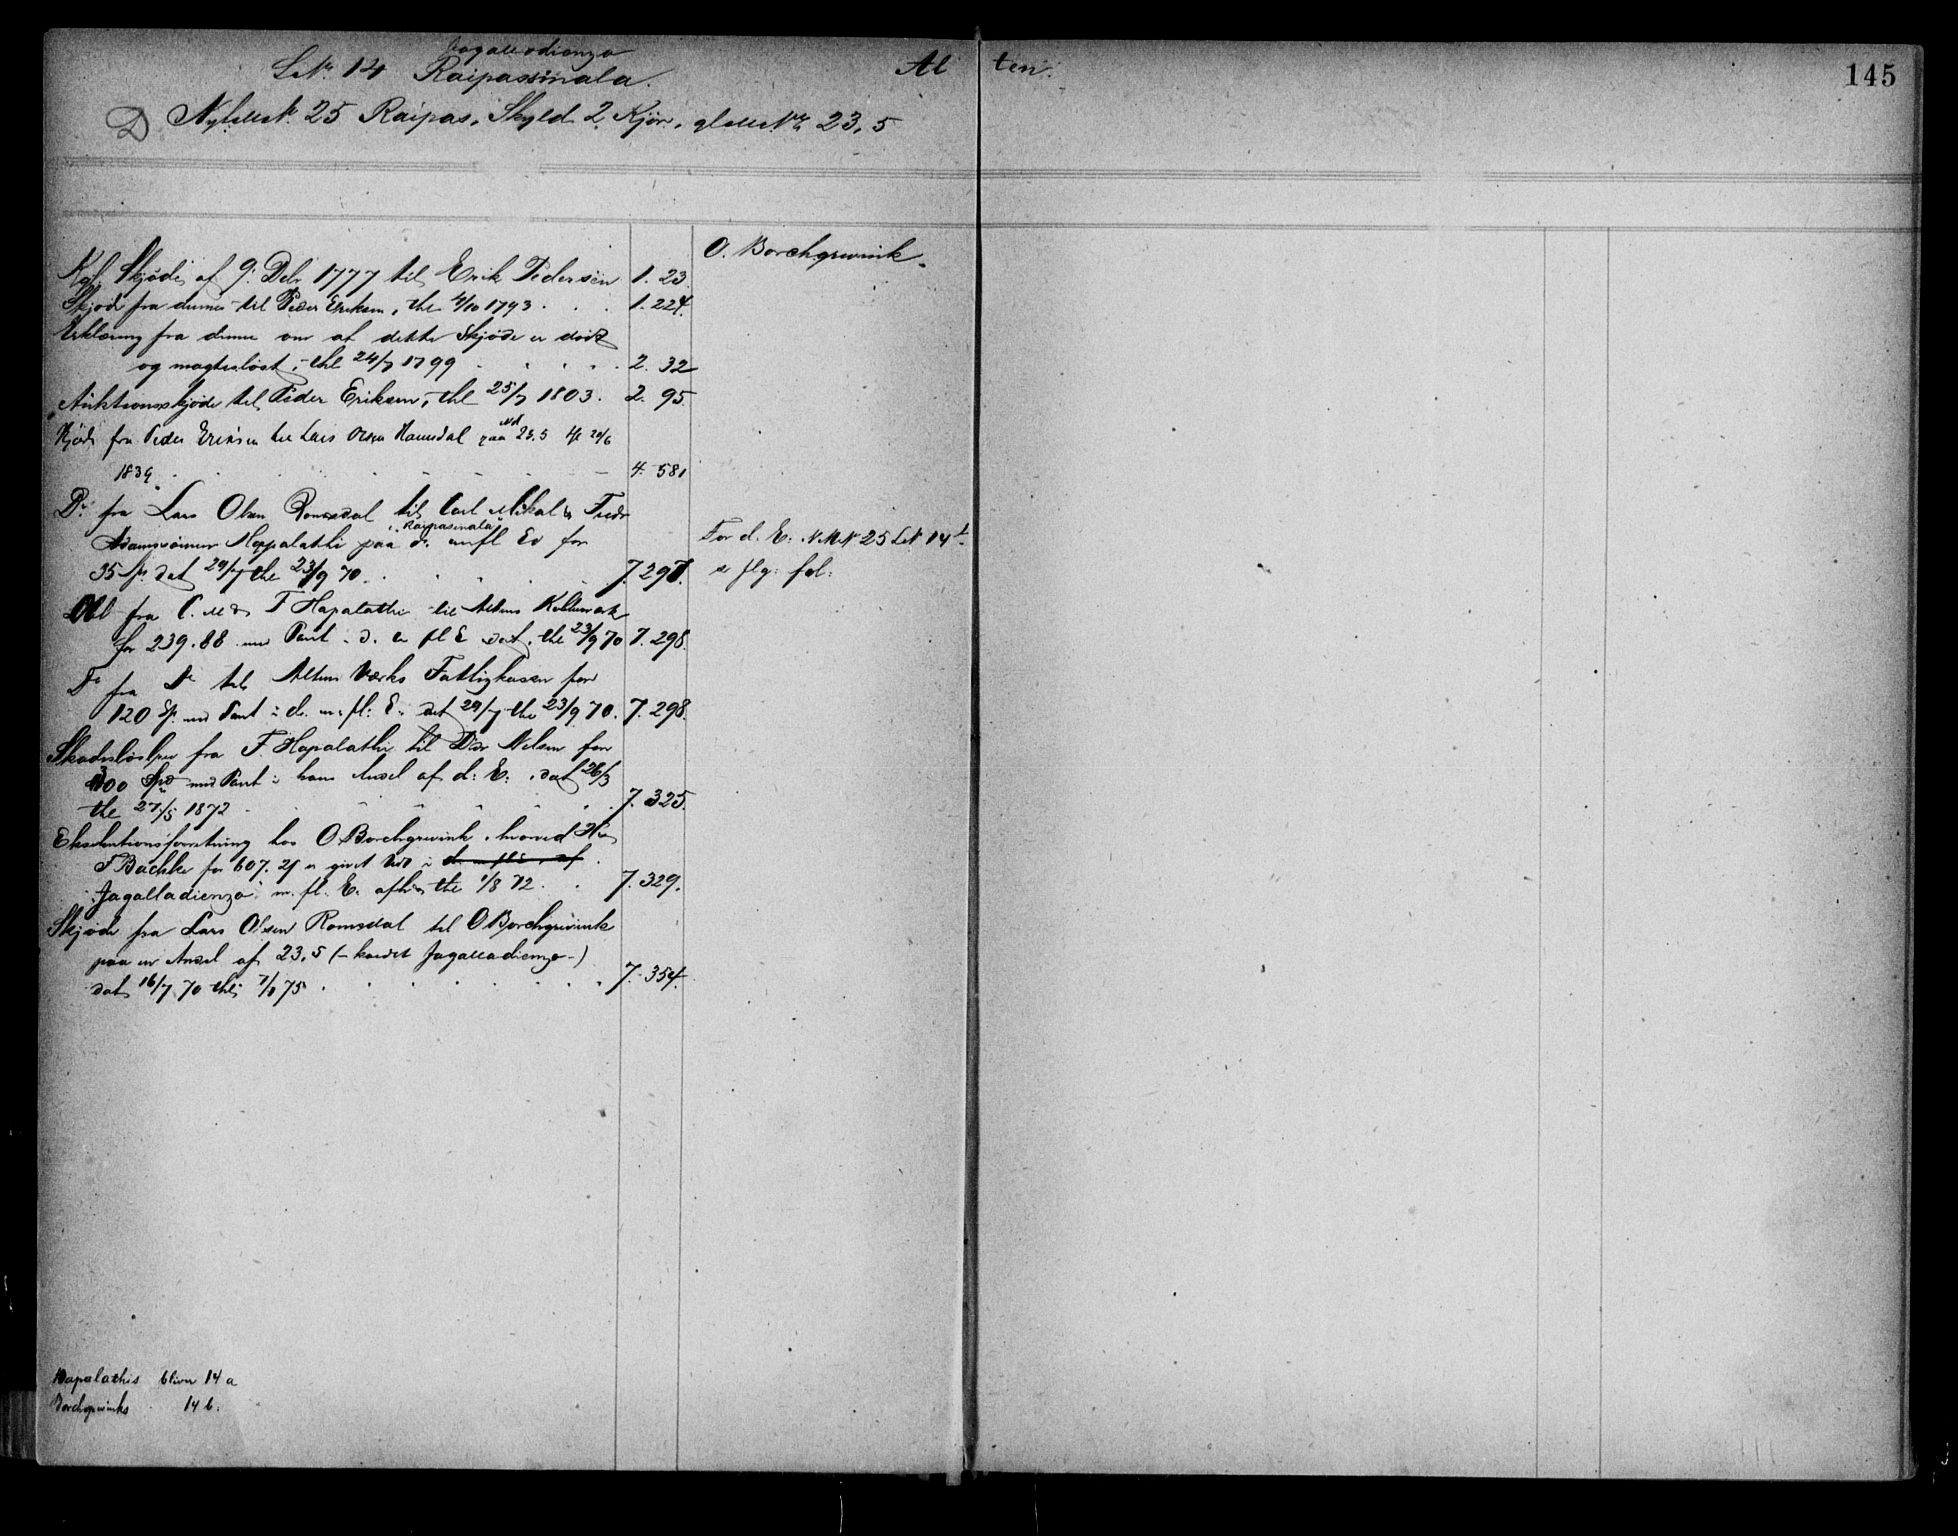 Jagalladienzo
L.Nr. 14 Raipassinala. Al ten. 145
D Nylille Nr. 25 Raipas, Skyld 2 Kjør, gl. Nr. 23,5
O. Borchgrevink.
Kgl. Skjøde af 9. Debr 1777 til Erik Pedersen 1. 23.
Skjøde fra denne til Peder Eriksen, thl. 4/10 1793 . . 1. 224.
Erklæring fra denne om at dette Skjøde er dødt
og magtesløst, thl. 24/7 1799 . . . . . 2. 32
Auktionsskjøde til Peder Eriksen, thl. 25/7 1803. 2. 95.
Skjøde fra Peder Eriksen til Lars Olsen Ramsdal paa Nd 23.5 20/6
1839. 4. 581
Do. fra Lars Olsen Romsdal til Carl Mikal & Fredr
"Raipasinala"
Adamsønner Happalathi paa d. m fl Ed for
For d. E. N.M.Nr 25 L.Nr 14 b.
35 Sp. dat 29/7 thl 23/9 70. . . . . 7. 297.
se flg. fol:
Obl fra C. M & F Hapalathi til Altens Kobberværk
for 239.88 med Pant i d. m fl E dat, thl 23/9 70 7. 298.
Do fra Do til Altens Værks Fattigkasse for
120 Sp. med Pant i d. m. fl: E. dat 29/7 thl 23/9 70. 7. 298.
Skadesløsbrev fra F. Hapalathi til Nilsen for
300 Spd med Pant i hans Andel af d: E: , dat 26/3
thl 27/5 1872 . . . . . . 7. 325.
Eksekutionsforretning hos O. Borchgrevink, hvorved Hr
F Bachke for 607. 21 er givet Udl i d. m fl E. af
"Jagalladienzo" m. fl. E. afh. thl 1/8 72. . 7. 329.
Skjøde fra Lars Olsen Romsdal til O Borchgrevink
paa en Andel af 23,5 (- kaldet Jagalladienzo -)
dat 16/7 70 thl 7/8 75 . . . . . . . 7. 354.
Hapalathis bliver 14 a
Borchgrevinks 14 b.